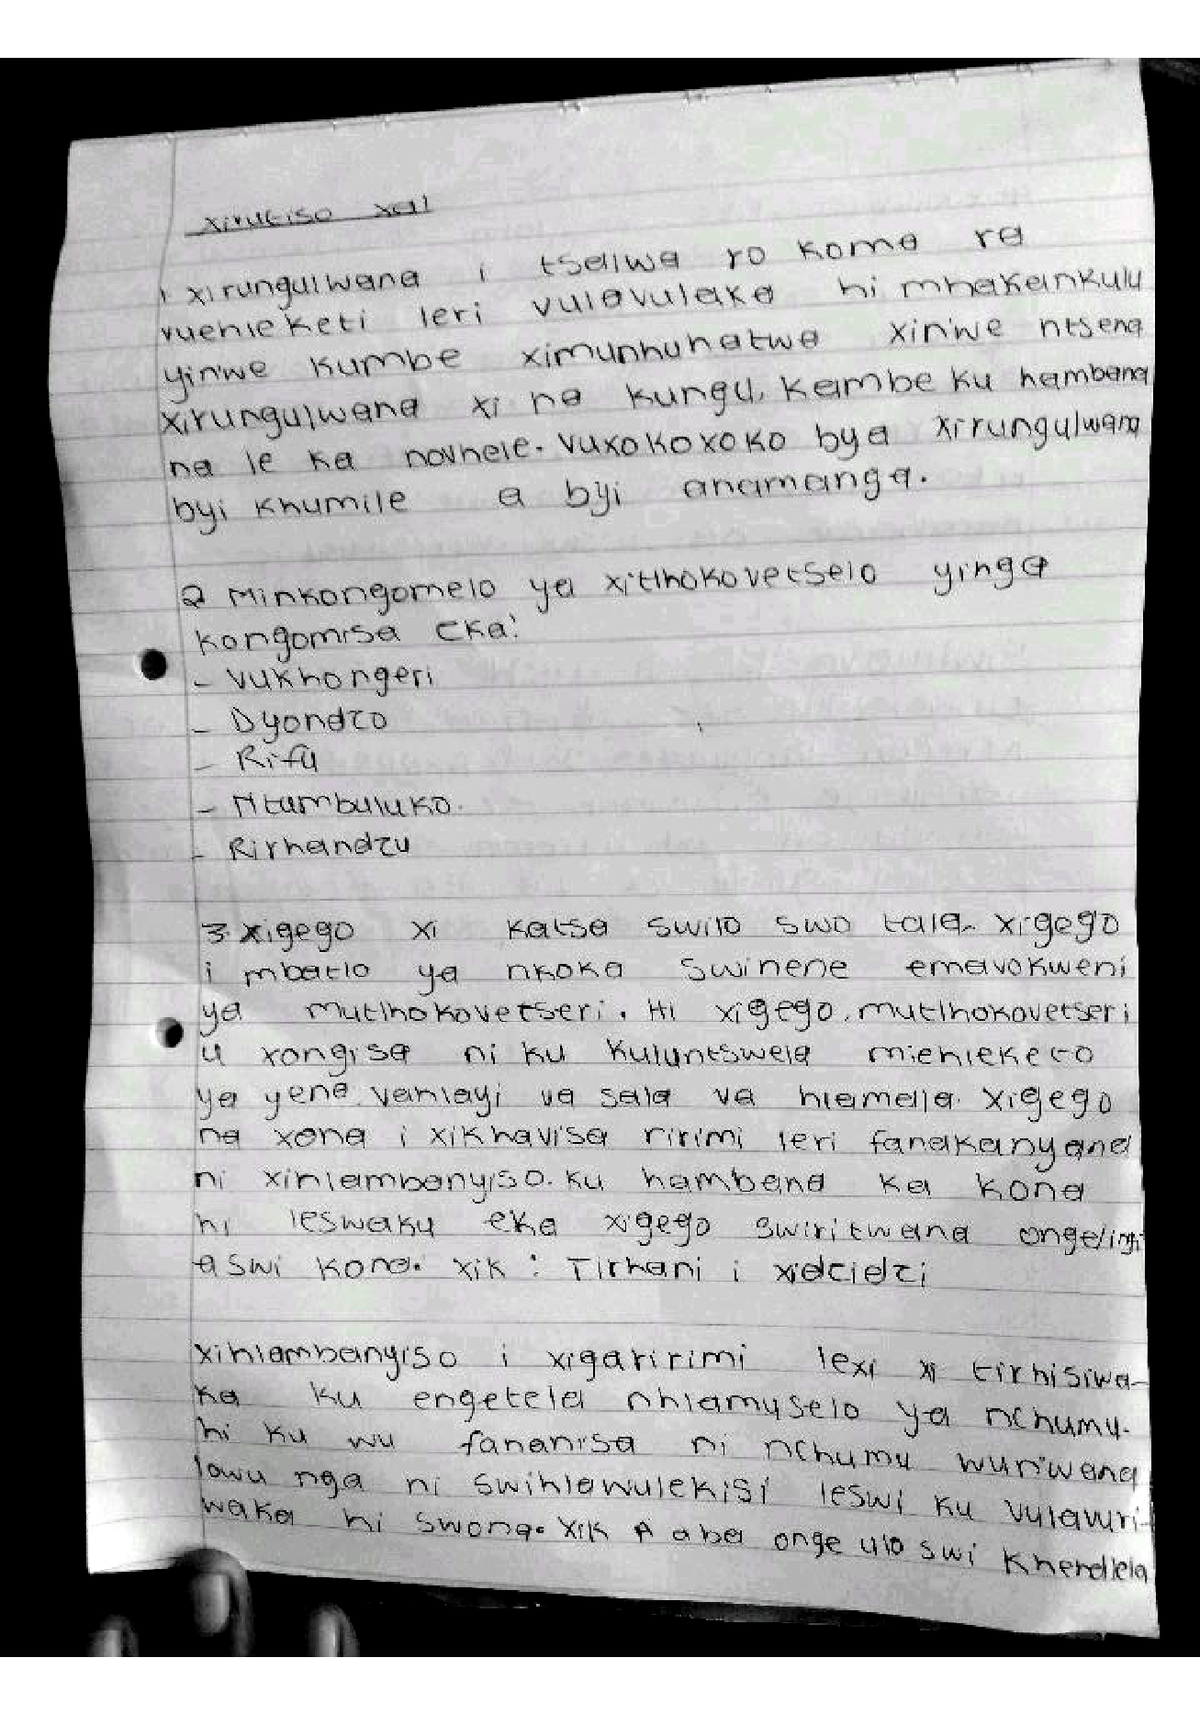 xirutiso xa1
1 xirungulwana i tsaliwa ro koma ra
vuehleketi leri vulavulaka hi mhakankulu
yin'we kumbe ximunhuhatwa xin'we ntsena
xirungulwana xi na kungu, kambe ku hambana
na le ka novhele. Vuxokoxoko bya xirungulwana
byi khumile a byi anamanga.
2 Minkongomelo ya xitlhokovetselo yinga
kongomisa eka:
- Vukhongeri
- Dyondzo
- Rifu
- Ntumbuluko.
- Rirhandzu
3. xigego xi katsa swilo swo tala. xigego
i mbatlo ya nkoka swinene emavokweni
ya mutlhokovetseri. Hi xigego, mutlhokovetseri
u xongisa ni ku kuluntswela miehleketo
ya yena vahlayi va sala va hlamella. xigego
na xona i xikhavisa ririmi leri fanakanyana
ni xihlambanyiso. ku hambana ka kona
hi leswaku eka xigego swiritwana ongelingi
a swi kona. xik : Tirhani i xidzidzi
xihlambanyiso i xigaririmi lexi xi tirhisiwa-
ka ku engetela nhlamuselo ya nchumu.
hi ku wu fananisa ni nchumu wun'wana
lowu nga ni swihlawulekisi leswi ku vulavuri-
waka hi swona. xik A aba onge ulo swi khendlela